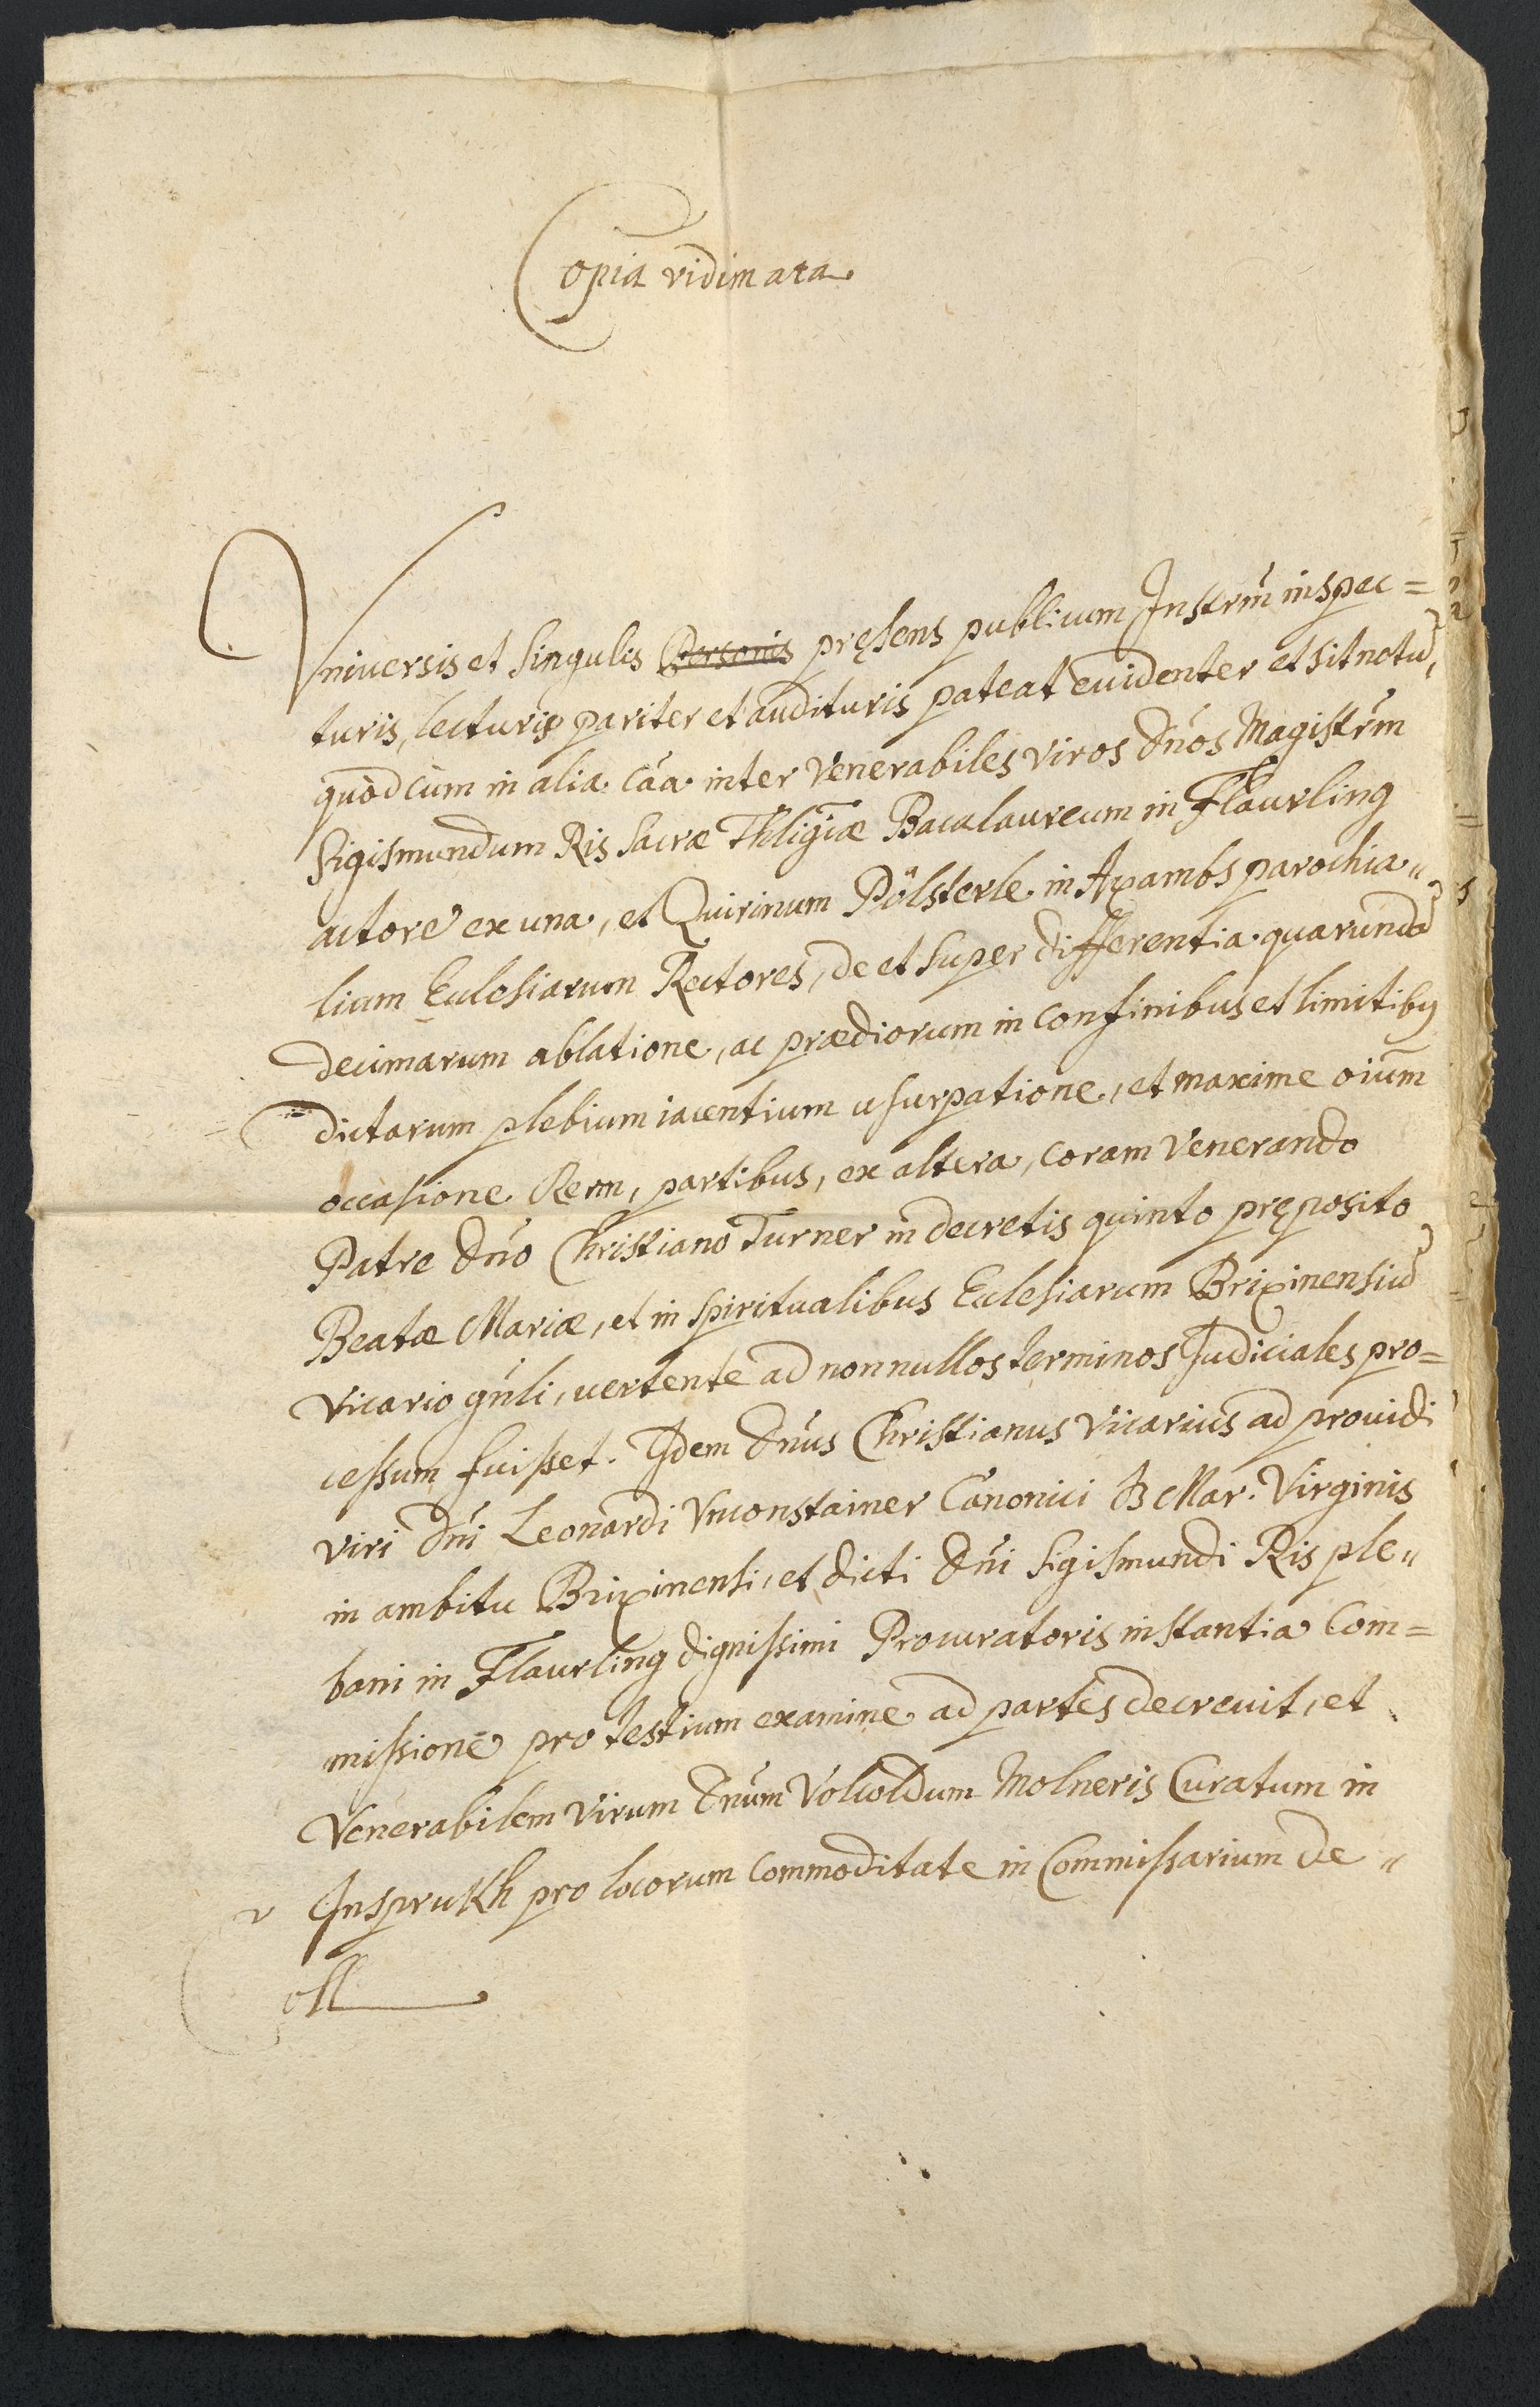 Copia vidimata
Vniversis et Singulis Personis pręsens publicum Instrm̄ inspec=
turis, lecturis pariter et audituris pateat euidenter et sit notū,
quòd cùm in alia cāā inter Venerabiles viros Dn̄os Magistrm̄
Sigismundum Ris Sacræ Thligiæ Bacalaureum in Flaurling
actore ex una, et Quirinum Pölsterle in Axambs parochia„
lium Ecclesiarum Rectores, de et super differentia quarundā
decimarum ablatione, ac prædiorum in confinibus et limitibus
dictarum plebium iacentium usurpatione, et maxime oium̄
occasione Rerm, partibus, ex altera, coram Venerando
Patre Dn̄o Christiano Turner in decretis quinto pręposito
Beatæ Mariæ, et in spiritualibus Ecclesiarum Brixinensiū
Vicario gn̄li, uertente ad nonnullos terminos Judiciales pro=
cessum fuisset. Idem Dn̄us Christianus Vicarius ad prouidi
viri Dn̄i Leonardi Vnconstainer Canonici B Mar. Virginis
in ambitu Brixinensi, et dicti Dn̄i Sigismundi Ris ple„
bani in Flaurling dignissimi Procuratoris instantia Com=
missionē pro testium examine ad partes decreuit, et
Venerabilem Virum Dn̄um Volcoldum Molneris Curatum in
Insprukh pro locorum commoditate in Commissarium de„